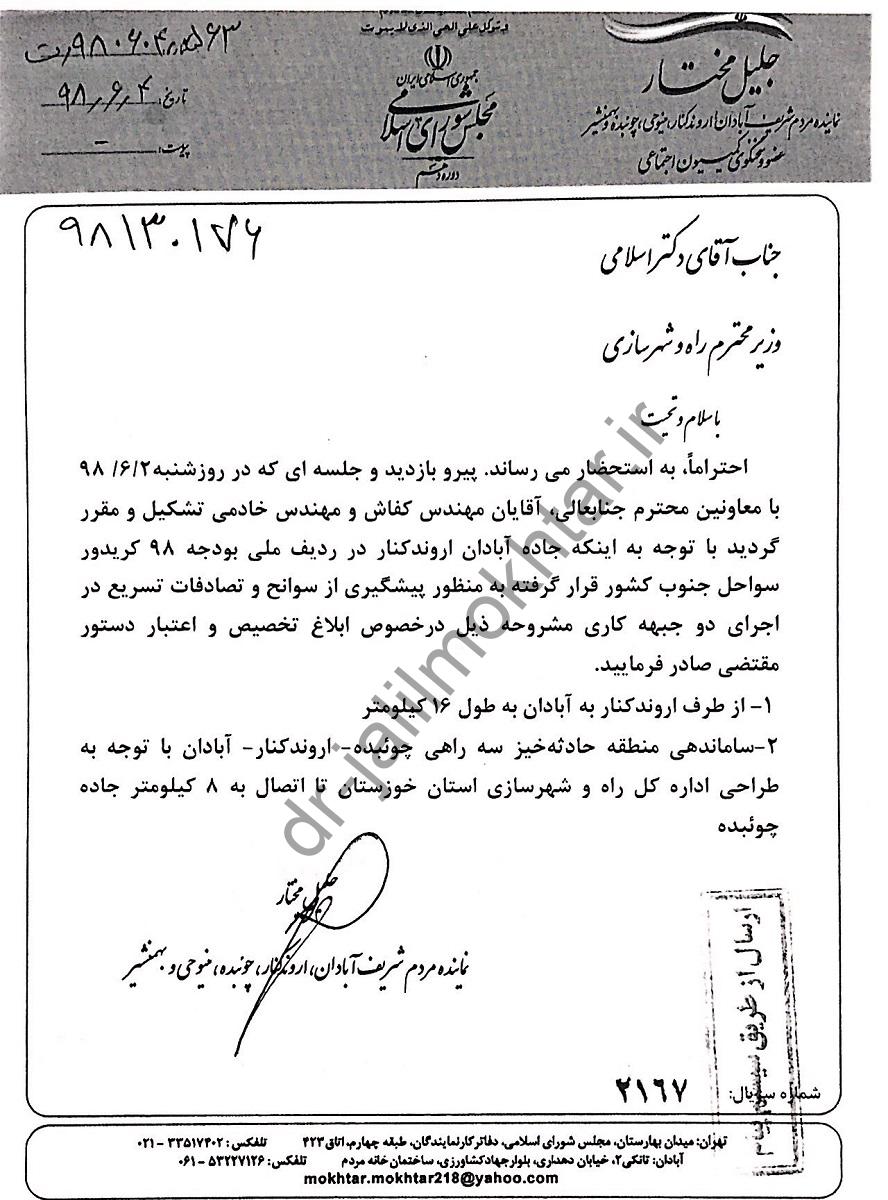 و توکل علی الحی الذی لا یموت
جمهوری اسلامی ایران
مجلس شورای اسلامی
دوره دهم
جلیل مختار
نماینده مردم شریف آبادان، اروندکنار، منیوحی، چوئبده و بهمنشیر
عضو و سخنگوی کمیسیون اجتماعی
تاریخ: ۹۸٫۶٫۴
پیوست: -
۹۸۱۳۰۱۷۶
جناب آقای دکتر اسلامی
وزیر محترم راه و شهرسازی
با سلام و تحیت
احتراماً، به استحضار می رساند. پیرو بازدید و جلسه ای که در روزشنبه۹۸ /۶/۲
با معاونین محترم جنابعالی، آقایان مهندس کفاش و مهندس خادمی تشکیل و مقرر
گردید با توجه به اینکه جاده آبادان اروندکنار در ردیف ملی بودجه ۹۸ کریدور
سواحل جنوب کشور قرار گرفته به منظور پیشگیری از سوانح و تصادفات تسریع در
اجرای دو جبهه کاری مشروحه ذیل درخصوص ابلاغ تخصیص و اعتبار دستور
مقتضی صادر فرمایید.
۱- از طرف اروندکنار به آبادان به طول ۱۶ کیلومتر
۲-ساماندهی منطقه حادثه‌خیز سه راهی چوئبده- اروندکنار- آبادان با توجه به
طراحی اداره کل راه و شهرسازی استان خوزستان تا اتصال به ۸ کیلومتر جاده
چوئبده
جلیل مختار
نماینده مردم شریف آبادان، اروندکنار، چوئبده، منیوحی و بهمنشیر
ارسال از طریق سیستم پیام
شماره سریال: ۲۱۶۷
تهران: میدان بهارستان، مجلس شورای اسلامی، دفاتر کار نمایندگان، طبقه چهارم، اتاق ۴۲۳ تلفکس: ۳۳۵۱۷۴۰۲ - ۰۲۱
آبادان: تانکی۲، خیابان دهداری، بلوار جهاد کشاورزی، ساختمان خانه مردم تلفکس: ۵۳۲۲۷۱۲۶ - ۰۶۱
mokhtar.mokhtar218@yahoo.com
dr-jalilmokhtar.ir